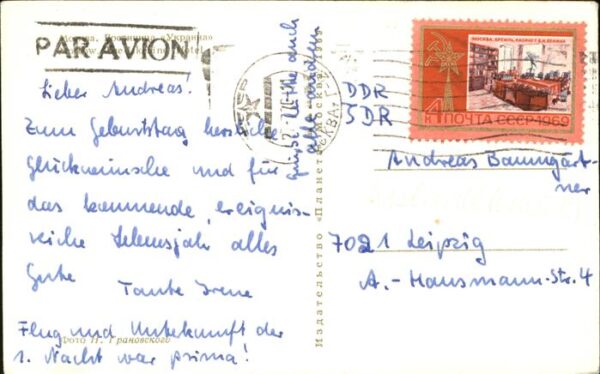 Москва. Гостиница «Украина»
PAR AVION
Lieber Andreas!
Zum Geburtstag herzliche
Glückwünsche und für
das kommende, ereignis-
reiche Lebensjahr alles
Gute
Tante Irene
Flug und Unterkunft der
1. Nacht war prima!
Фото Н. Грановского
grüße bitte auch
alle anderen
Издательство «Планета» Москва
МОСКВА. КРЕМЛЬ. КАБИНЕТ В.И. ЛЕНИНА
4 К
ПОЧТА СССР·1969
DDR
ГДР
Andreas Baumgart-
ner
7021 Leipzig
A.-Hausmann-Str. 4